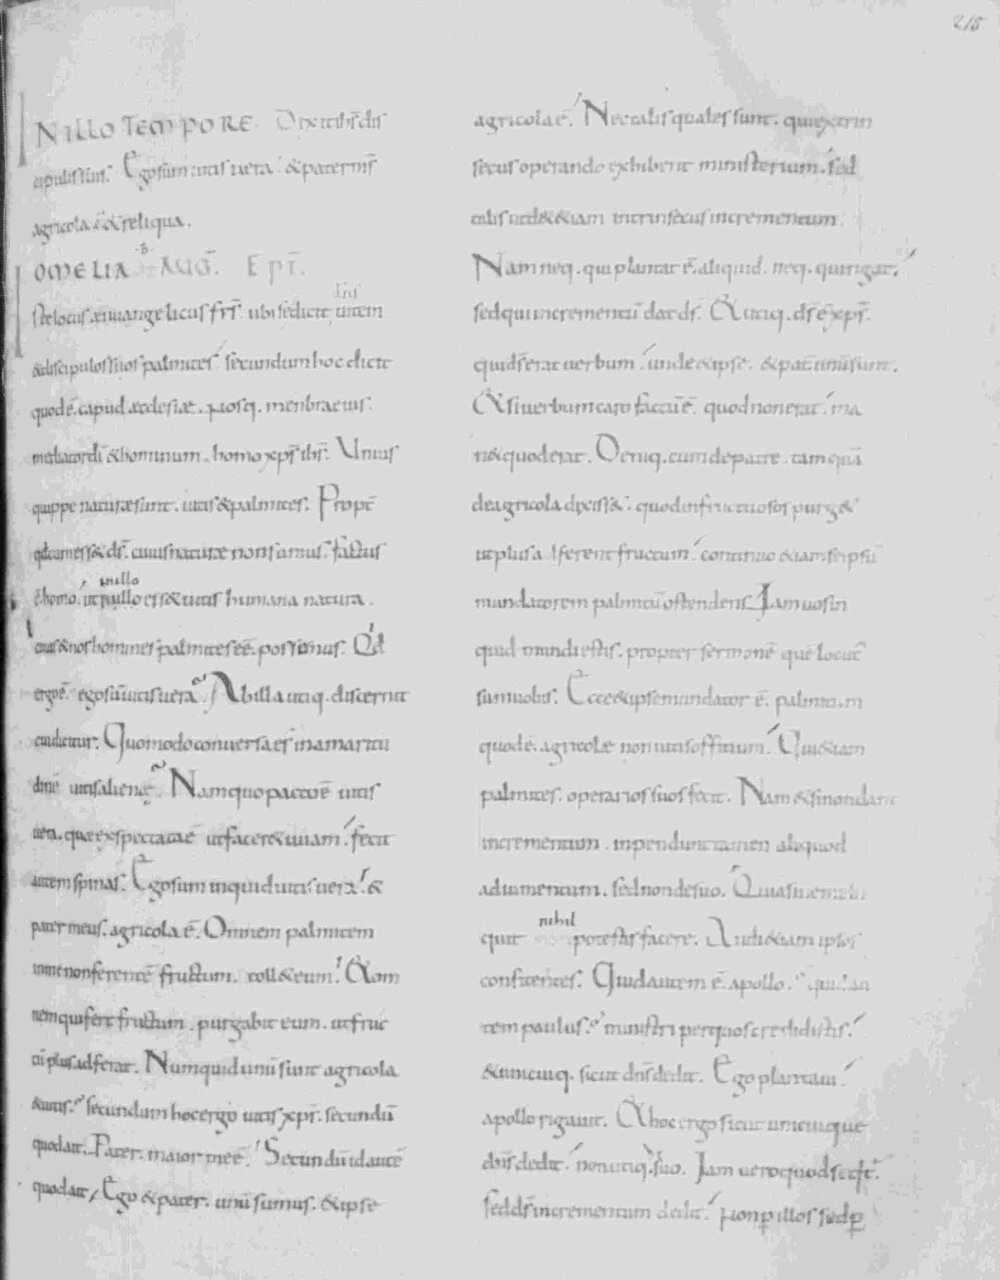 215
IN ILLO TEMPORE. Dixit ihs dis
cipulis suis. Ego sum uitis uera. & pater ms
agricola ē & reliqua.
OMELIA AUG. EPI.
Iste locus æuuangelicus frs. ubi se dicit dns uitem
& discipulos suos palmites. secundum hoc dicit
quod ē. capud æcclesiæ. nosq. menbra eius.
mediator di & hominum. homo xps ihs. Unius
quippe naturæ sunt. uitis & palmites. Propt
qd cum ess& ds. cuius naturæ non sumus. factus
ē homo. ut nullo ess& uitis humana natura.
cuius & nos homines palmites eē. possemus. Qd
ergo ē. ego sū uitis uera. Ab illa utiq. discernit
cui dicitur. Quomodo conuersa es in amaritu
dinē uitis alienę. Nam quo pacto ē uitis
uera. quæ exspectata ē ut facer& uuam. fecit
autem spinas. Ego sum inquid uitis uera. &
pater meus. agricola ē. Omnem palmitem
in me non ferentē fructum. toll& eum. & om
nem qui fert fructum. purgabit eum. ut fruc
tū plus adferat. Numquid unū sunt agricola
& uitis. secundum hoc ergo uitis xps. secundū
quod ait. Pater. maior me ē. Secundū id autē
quod ait. Ego & pater. unū sumus. & ipse
agricola ē. Nec talis quales sunt. qui extrin
secus operando exhibent ministerium. sed
talis ut d& &iam intrinsecus incrementum.
Nam neq. qui plantat ē. aliquid. neq. qui rigat.
sed qui incrementū dat ds. & utiq. ds ē xps.
qui ds erat uerbum. unde & ipse. & pat unū sunt.
& si uerbum caro factū ē. quod non erat. ma
n& quod erat. Deniq. cum de patre. tam quā
de agricola dixiss&. quod infructuosos purg&
ut plus afferent fructum. continuo &iam. se ipsū
mundatorem palmitū ostendens. Iam uos in
quid mundi estis. propter sermonē quē locut
sum uobis. Ecce & ipse mundator ē. palmitum
quod ē. agricolæ non uitis officium. Qui &iam
palmites. operarios suos fecit. Nam & si non dant
incrementum. inpendunt tamen aliquod
adiumentum. sed non de suo. Quia sine me in
quit nihil potestis facere. Audi &iam ipsos
confitentes. Quid autem ē. apollo. quid au
tem paulus. ministri per quos credidistis.
& unicuiq. sicut dns dedit. Ego plantaui.
apollo rigauit. & hoc ergo sicut unicuique
dns dedit. non utiq. suo. Iam uero quod
sed ds incrementum dedit. non p illos sed p